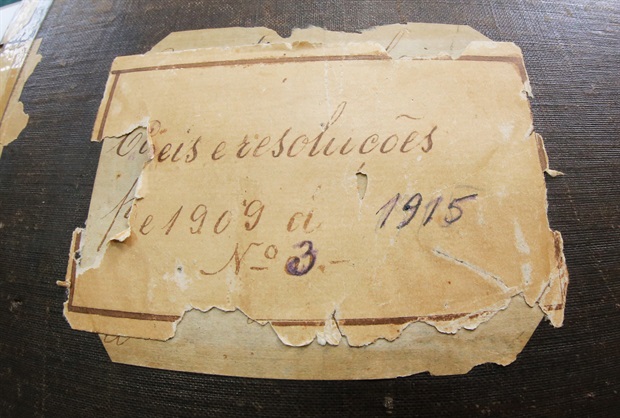 Leis e resoluções
De 1909 á 1915
Nº 3.-